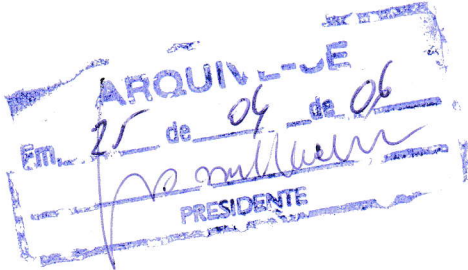 ARQUIVE-SE
Em 25 de 04 de 06
PRESIDENTE